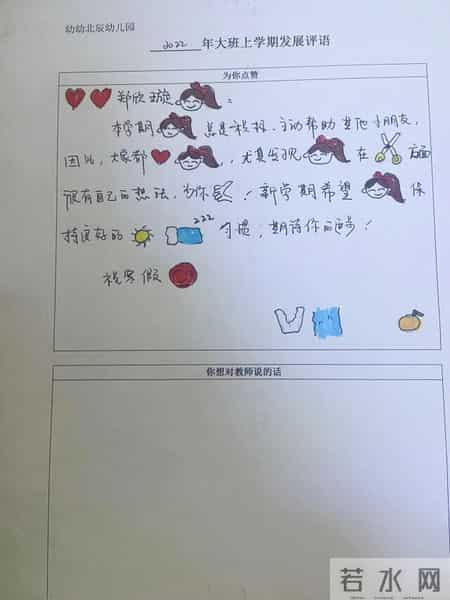 幼幼北辰幼儿园
2022 年大班上学期发展评语
为你点赞
郑欣璇：
本学期总是积极、主动帮助其他小朋友，
因此，大家都，尤其发现在方面
很有自己的想法，为你！新学期希望保
持良好的习惯，期待你的进步！
祝寒假
你想对教师说的话
若水网